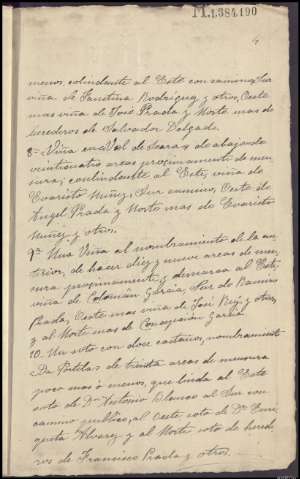 M.1,384,190
4
menos, colindante al Este con camino, Sur
viña de Faustina Rodriguez y otros, Oeste
mas viña de José Prada y Norte mas de
herederos de Salvador Delgado.
8.- Viña en Val de de abajo de
veinticuatro areas proximamente de men
sura; colindante al Este, viña de
Evaristo Nuñez, Sur camino, Oeste de
Angel Prada y Norte mas de Evaristo
Nuñez y otros.
9ª Una Viña al nombramiento de la an
terior, de hacer diez y nueve areas de men
sura proximamente y demarca al Este,
viña de Coloman Garcia, Sur de Ramiro
Prada, Oeste mas viña de José y otros,
y al Norte mas de Concepcion Garcia
10. Un soto con doce castaños, nombramiento
Da Portela de treinta areas de mensura
poco mas ó menos, que linda al Este
soto de Dn Antonio Blanco al Sur con
camino publico, al Oeste soto de Dn Enri
queta Alvarez y al Norte soto de herede
ros de Francisco Prada y otros.